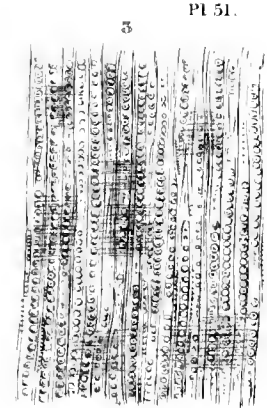 Pl 51.
3